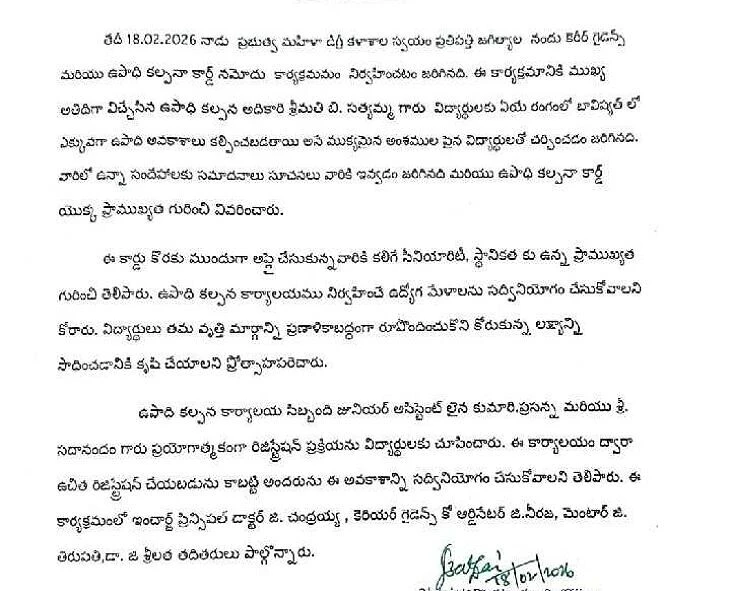 తేది 18.02.2026 నాడు ప్రభుత్వ మహిళా డిగ్రీ కళాశాల స్వయం ప్రతిపత్తి జగిత్యాల నందు కెరీర్ గైడెన్స్
మరియు ఉపాధి కల్పనా కార్డ్ నమోదు కార్యక్రమం నిర్వహించటం జరిగినది. ఈ కార్యక్రమానికి ముఖ్య
అతిథిగా విచ్చేసిన ఉపాధి కల్పన అధికారి శ్రీమతి బి. సత్యమ్మ గారు విద్యార్థులకు ఏయే రంగంలో బావిష్యత్ లో
ఎక్కువగా ఉపాధి అవకాశాలు కల్పించబడతాయి అనే ముక్యమైన అంశముల పైన విద్యార్థులతో చర్చించడం జరిగినది.
వారిలో ఉన్నా సందేహాలకు సమాదనాలు సూచనలు వారికి ఇవ్వడం జరిగినది మరియు ఉపాధి కల్పనా కార్డ్
యొక్క ప్రాముఖ్యత గురించి వివరించారు.
ఈ కార్డు కొరకు ముందుగా అప్లై చేసుకున్నవారికి కలిగే సీనియారిటీ, స్థానికత కు ఉన్న ప్రాముఖ్యత
గురించి తెలిపారు. ఉపాధి కల్పన కార్యాలయము నిర్వహించే ఉద్యోగ మేళాలను సద్వినియోగం చేసుకోవాలని
కోరారు. విద్యార్థులు తమ వృత్తి మార్గాన్ని ప్రణాళికాబద్ధంగా రూపొందించుకొని కోరుకున్న లక్ష్యాన్ని
సాదించడానికి కృషి చేయాలని ప్రోత్సాహపరిచారు.
ఉపాది కల్పన కార్యాలయ సిబ్బంది జూనియర్ అసిస్టెంట్ లైన కుమారి.ప్రసన్న మరియు శ్రీ.
సదానందం గారు ప్రయోగాత్మకంగా రిజిస్ట్రేషన్ ప్రక్రియను విద్యార్థులకు చూపించారు. ఈ కార్యాలయం ద్వారా
ఉచిత రిజిస్ట్రేషన్ చేయబడును కాబట్టి అందరును ఈ అవకాశాన్ని సద్వినియోగం చేసుకోవాలని తెలిపారు. ఈ
కార్యక్రమంలో ఇంచార్జ్ ప్రిన్సిపల్ డాక్టర్ జి. చంద్రయ్య , కెరియర్ గైడెన్స్ కో ఆర్డినేటర్ జి.నీరజ, మెంటార్ జి.
తిరుపతి,డా. జి శ్రీలత తదితరులు పాల్గొన్నారు.
18/02/2026